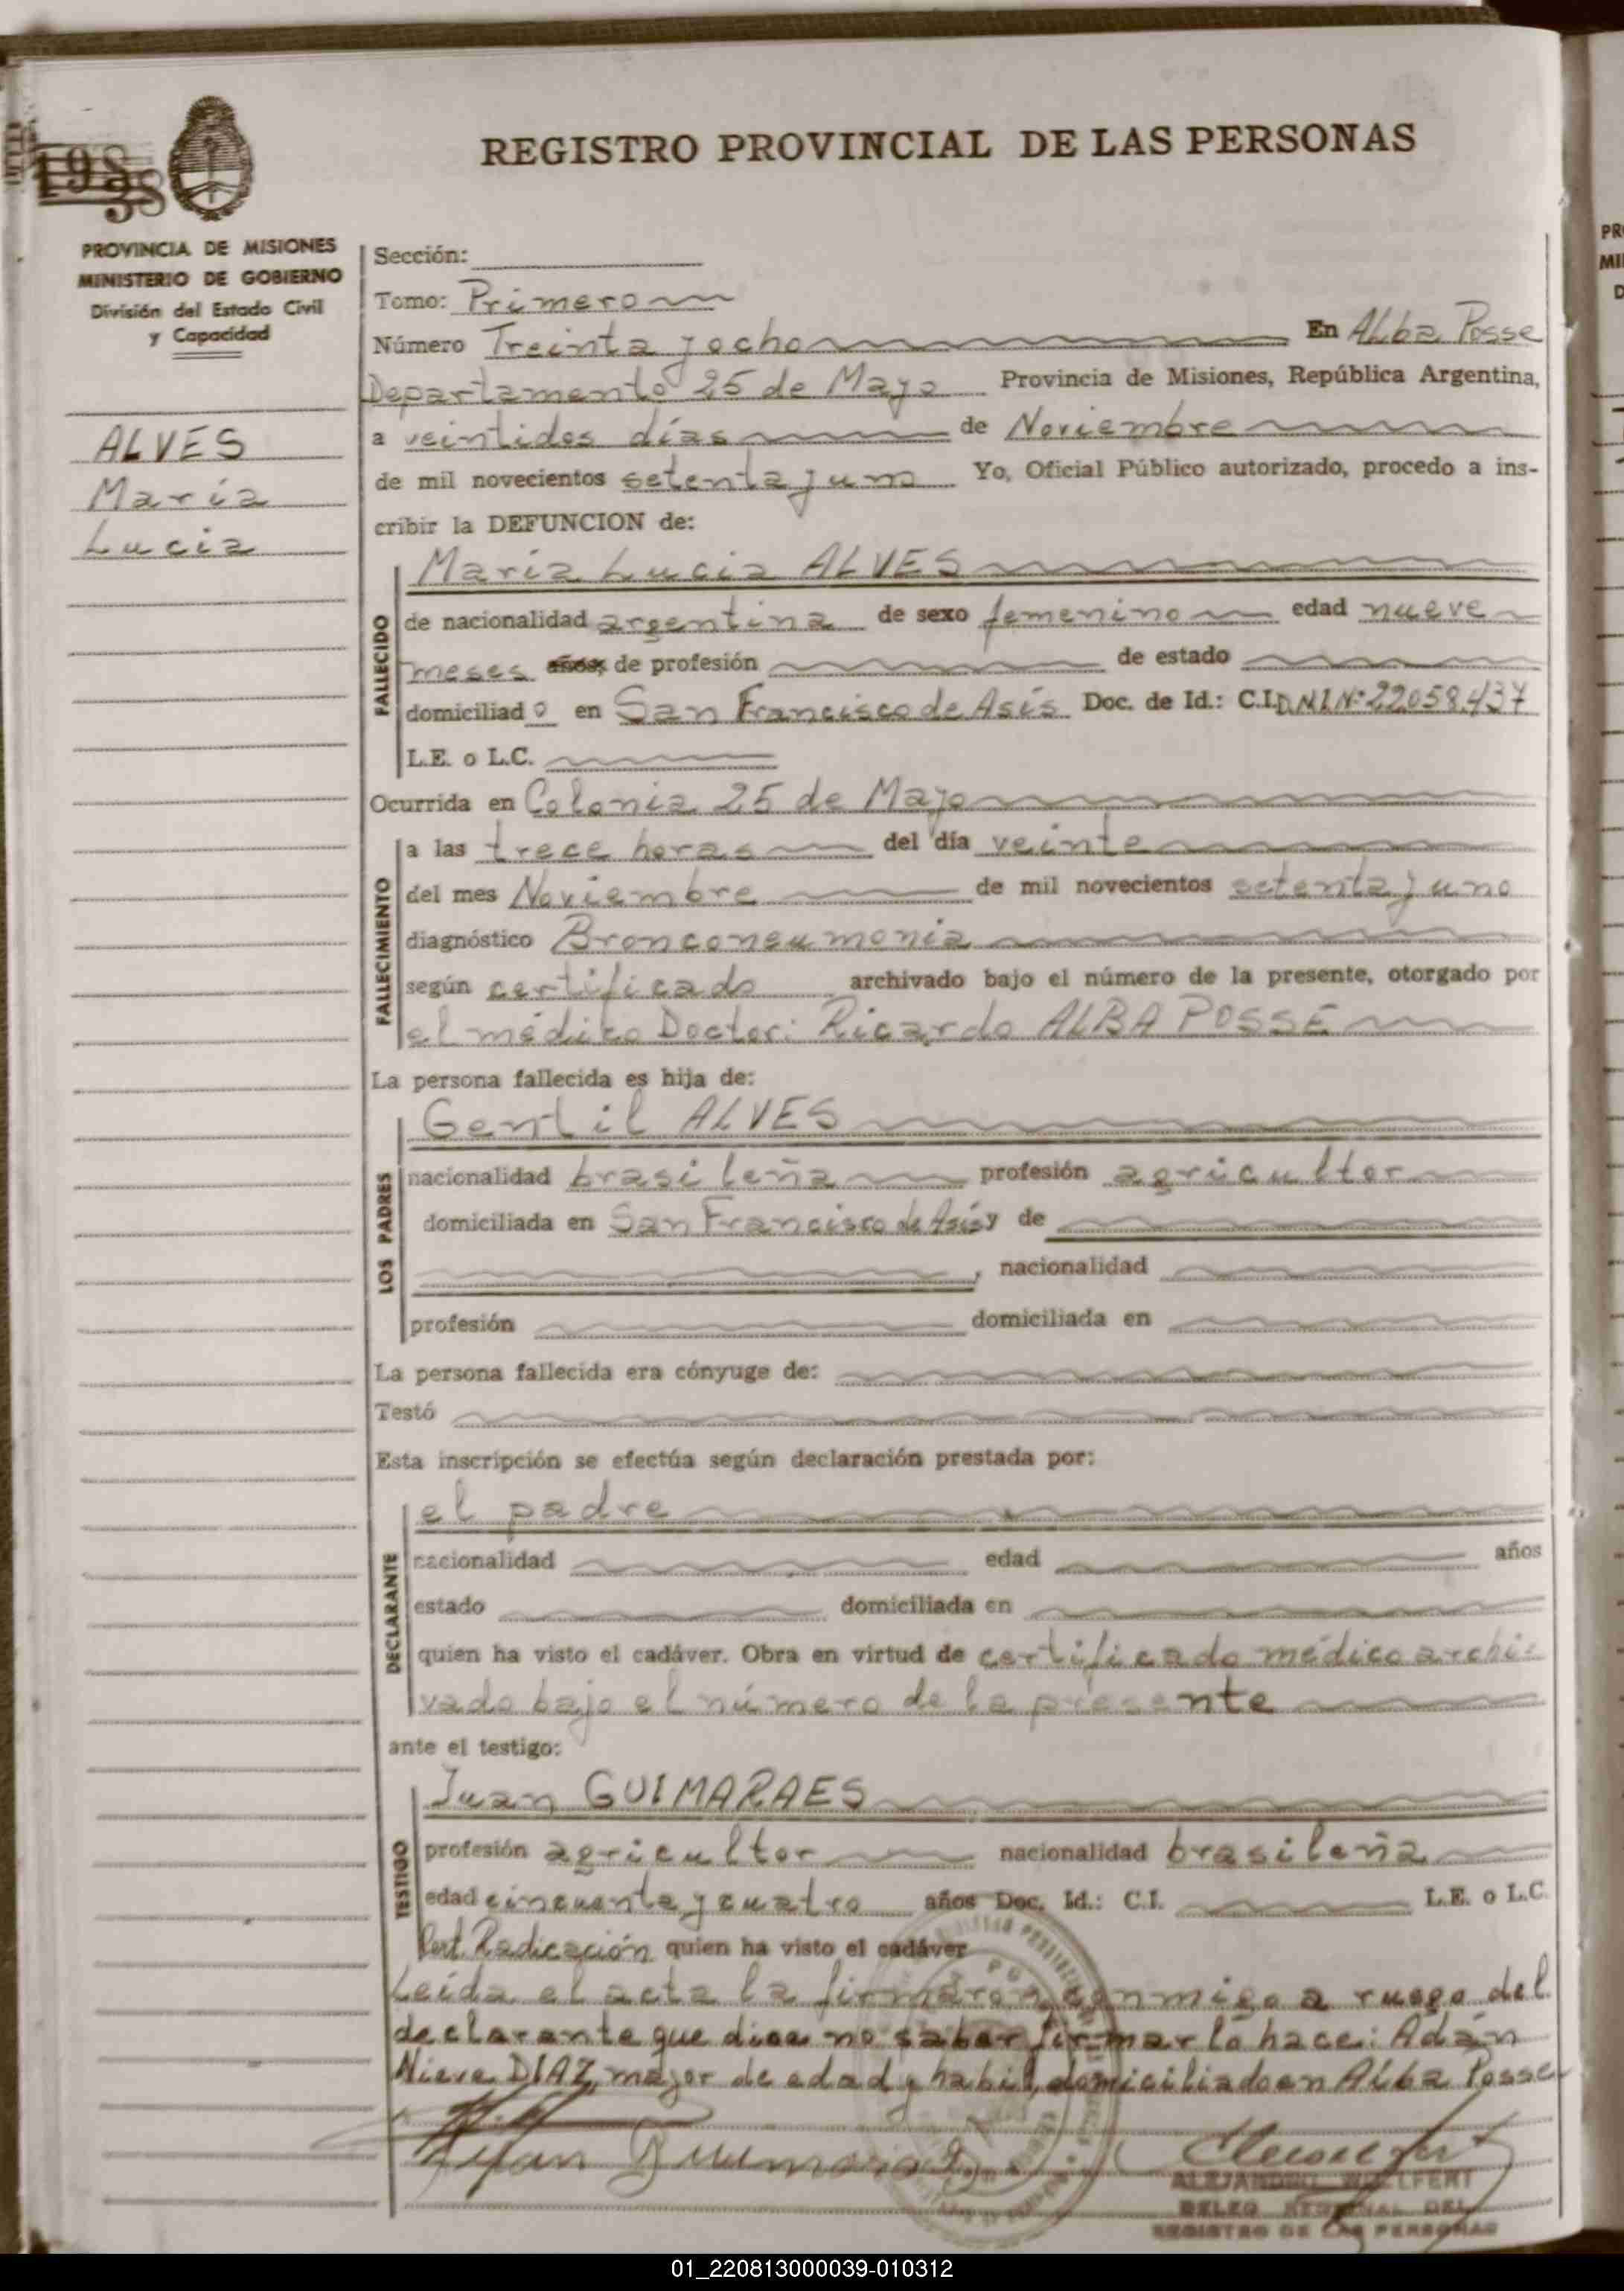 REGISTRO PROVINCIAL DE LAS PERSONAS
PROVINCIA DE MISIONES
MINISTERIO DE GOBIERNO
División del Estado Civil
y Capacidad
ALVES
María
Lucia
Sección:
Tomo: Primero
Número Treinta y ocho En Alba Posse
Departamento 25 de Mayo Provincia de Misiones, República Argentina,
a veintidos días de Noviembre
de mil novecientos setenta y uno Yo, Oficial Público autorizado, procedo a ins-
cribir la DEFUNCION de:
María Lucia ALVES
FALLECIDO
de nacionalidad argentina de sexo femenino edad nueve
meses años, de profesión de estado
domiciliado en San Francisco de Asís Doc. de Id.: C.I. D.N.I. Nº 22058.437
L.E. o L.C.
Ocurrida en Colonia 25 de Mayo
FALLECIMIENTO
a las trece horas del día veinte
del mes Noviembre de mil novecientos setenta y uno
diagnóstico Bronconeumonia
según certificado archivado bajo el número de la presente, otorgado por
el médico Doctor: Ricardo ALBA POSSE
La persona fallecida es hija de:
LOS PADRES
Gentil ALVES
nacionalidad brasileña profesión agricultor
domiciliada en San Francisco de Asís y de
, nacionalidad
profesión domiciliada en
La persona fallecida era cónyuge de:
Testó
Esta inscripción se efectúa según declaración prestada por:
DECLARANTE
el padre
nacionalidad edad años
estado domiciliada en
quien ha visto el cadáver. Obra en virtud de certificado médico archi-
vado bajo el número de la presente
ante el testigo:
TESTIGO
Juan GUIMARAES
profesión agricultor nacionalidad brasileña
edad cincuenta y cuatro años Doc. Id.: C.I. L.E. o L.C.
Cert. Radicación quien ha visto el cadáver
Leída el acta la firmaron conmigo a ruego del
declarante que dice no saber firmar lo hace: Adán
Nieve DIAZ, mayor de edad y habil, domiciliado en Alba Posse
Juan Guimaraes
ALEJANDRO WOLFERT
DELEG REGIONAL DEL
REGISTRO DE LAS PERSONAS
01_220813000039-010312